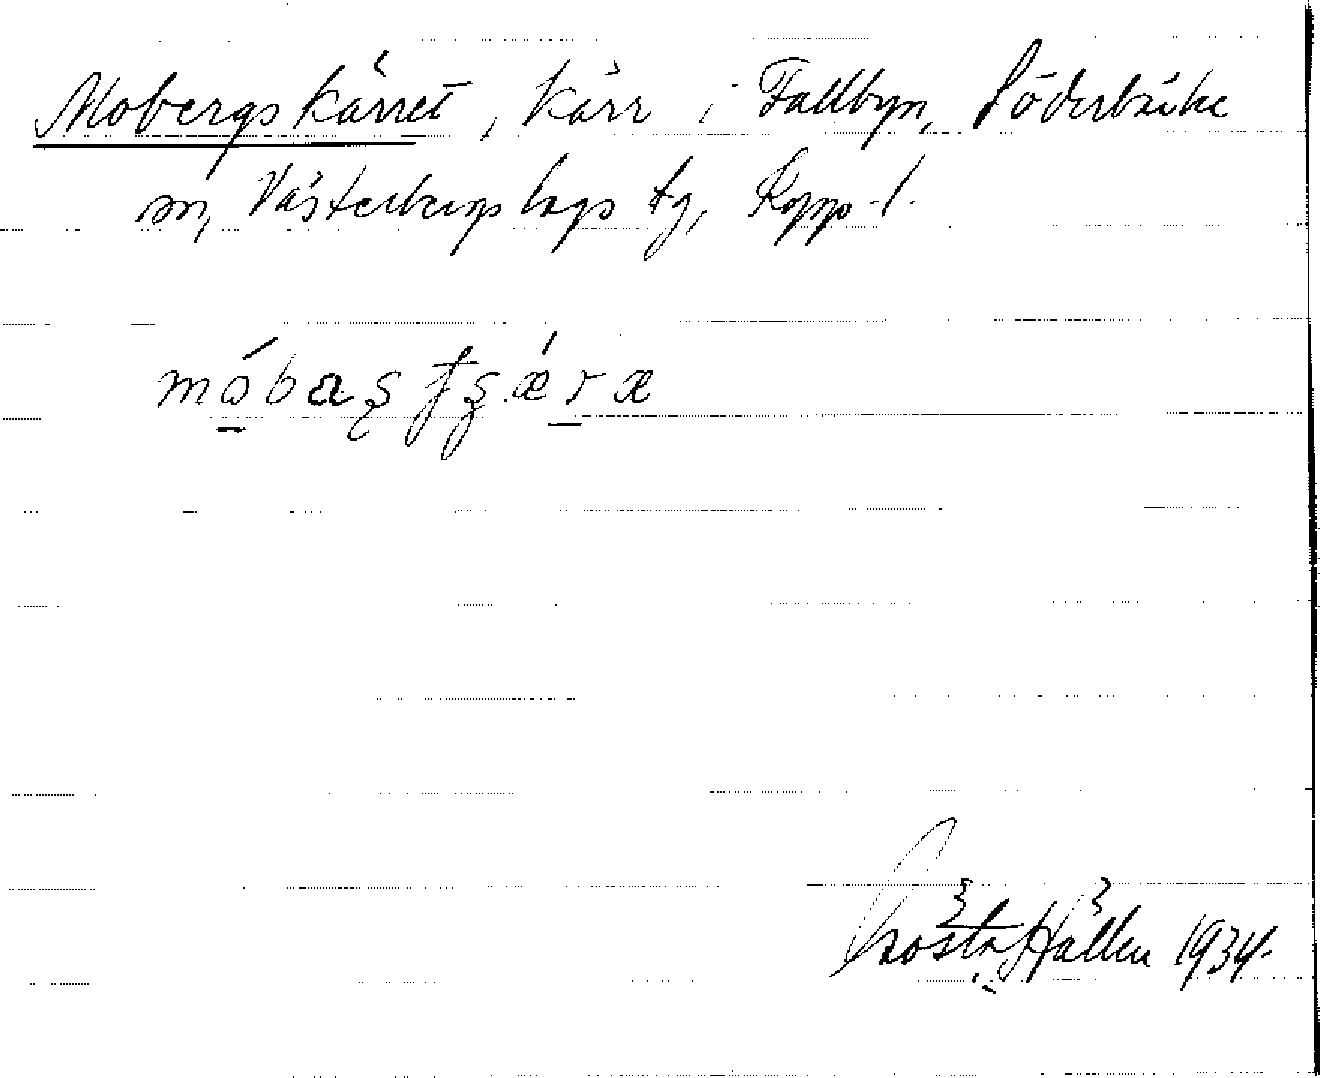 Mobergskärret, kärr i Fallbyn, Söderbärke
sn, Västerbergslags tg, Kopp. l.
Gösta Hällen 1934.